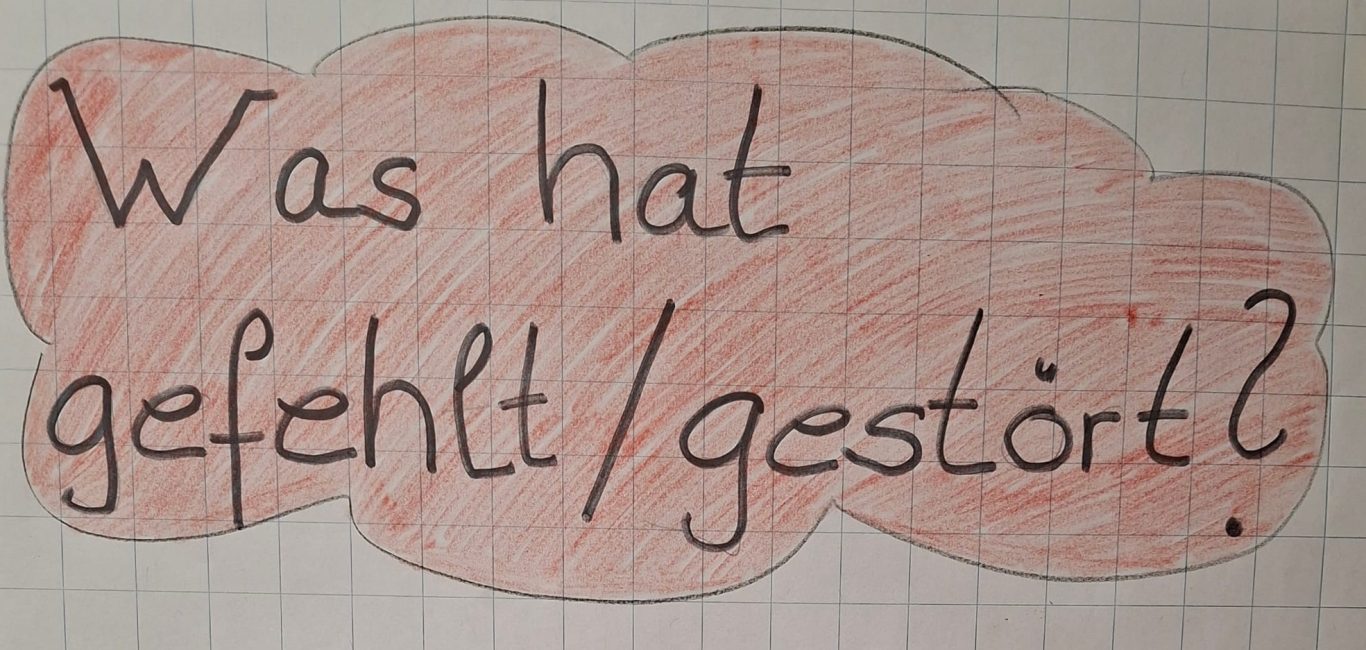 Was hat
gefehlt/gestört?